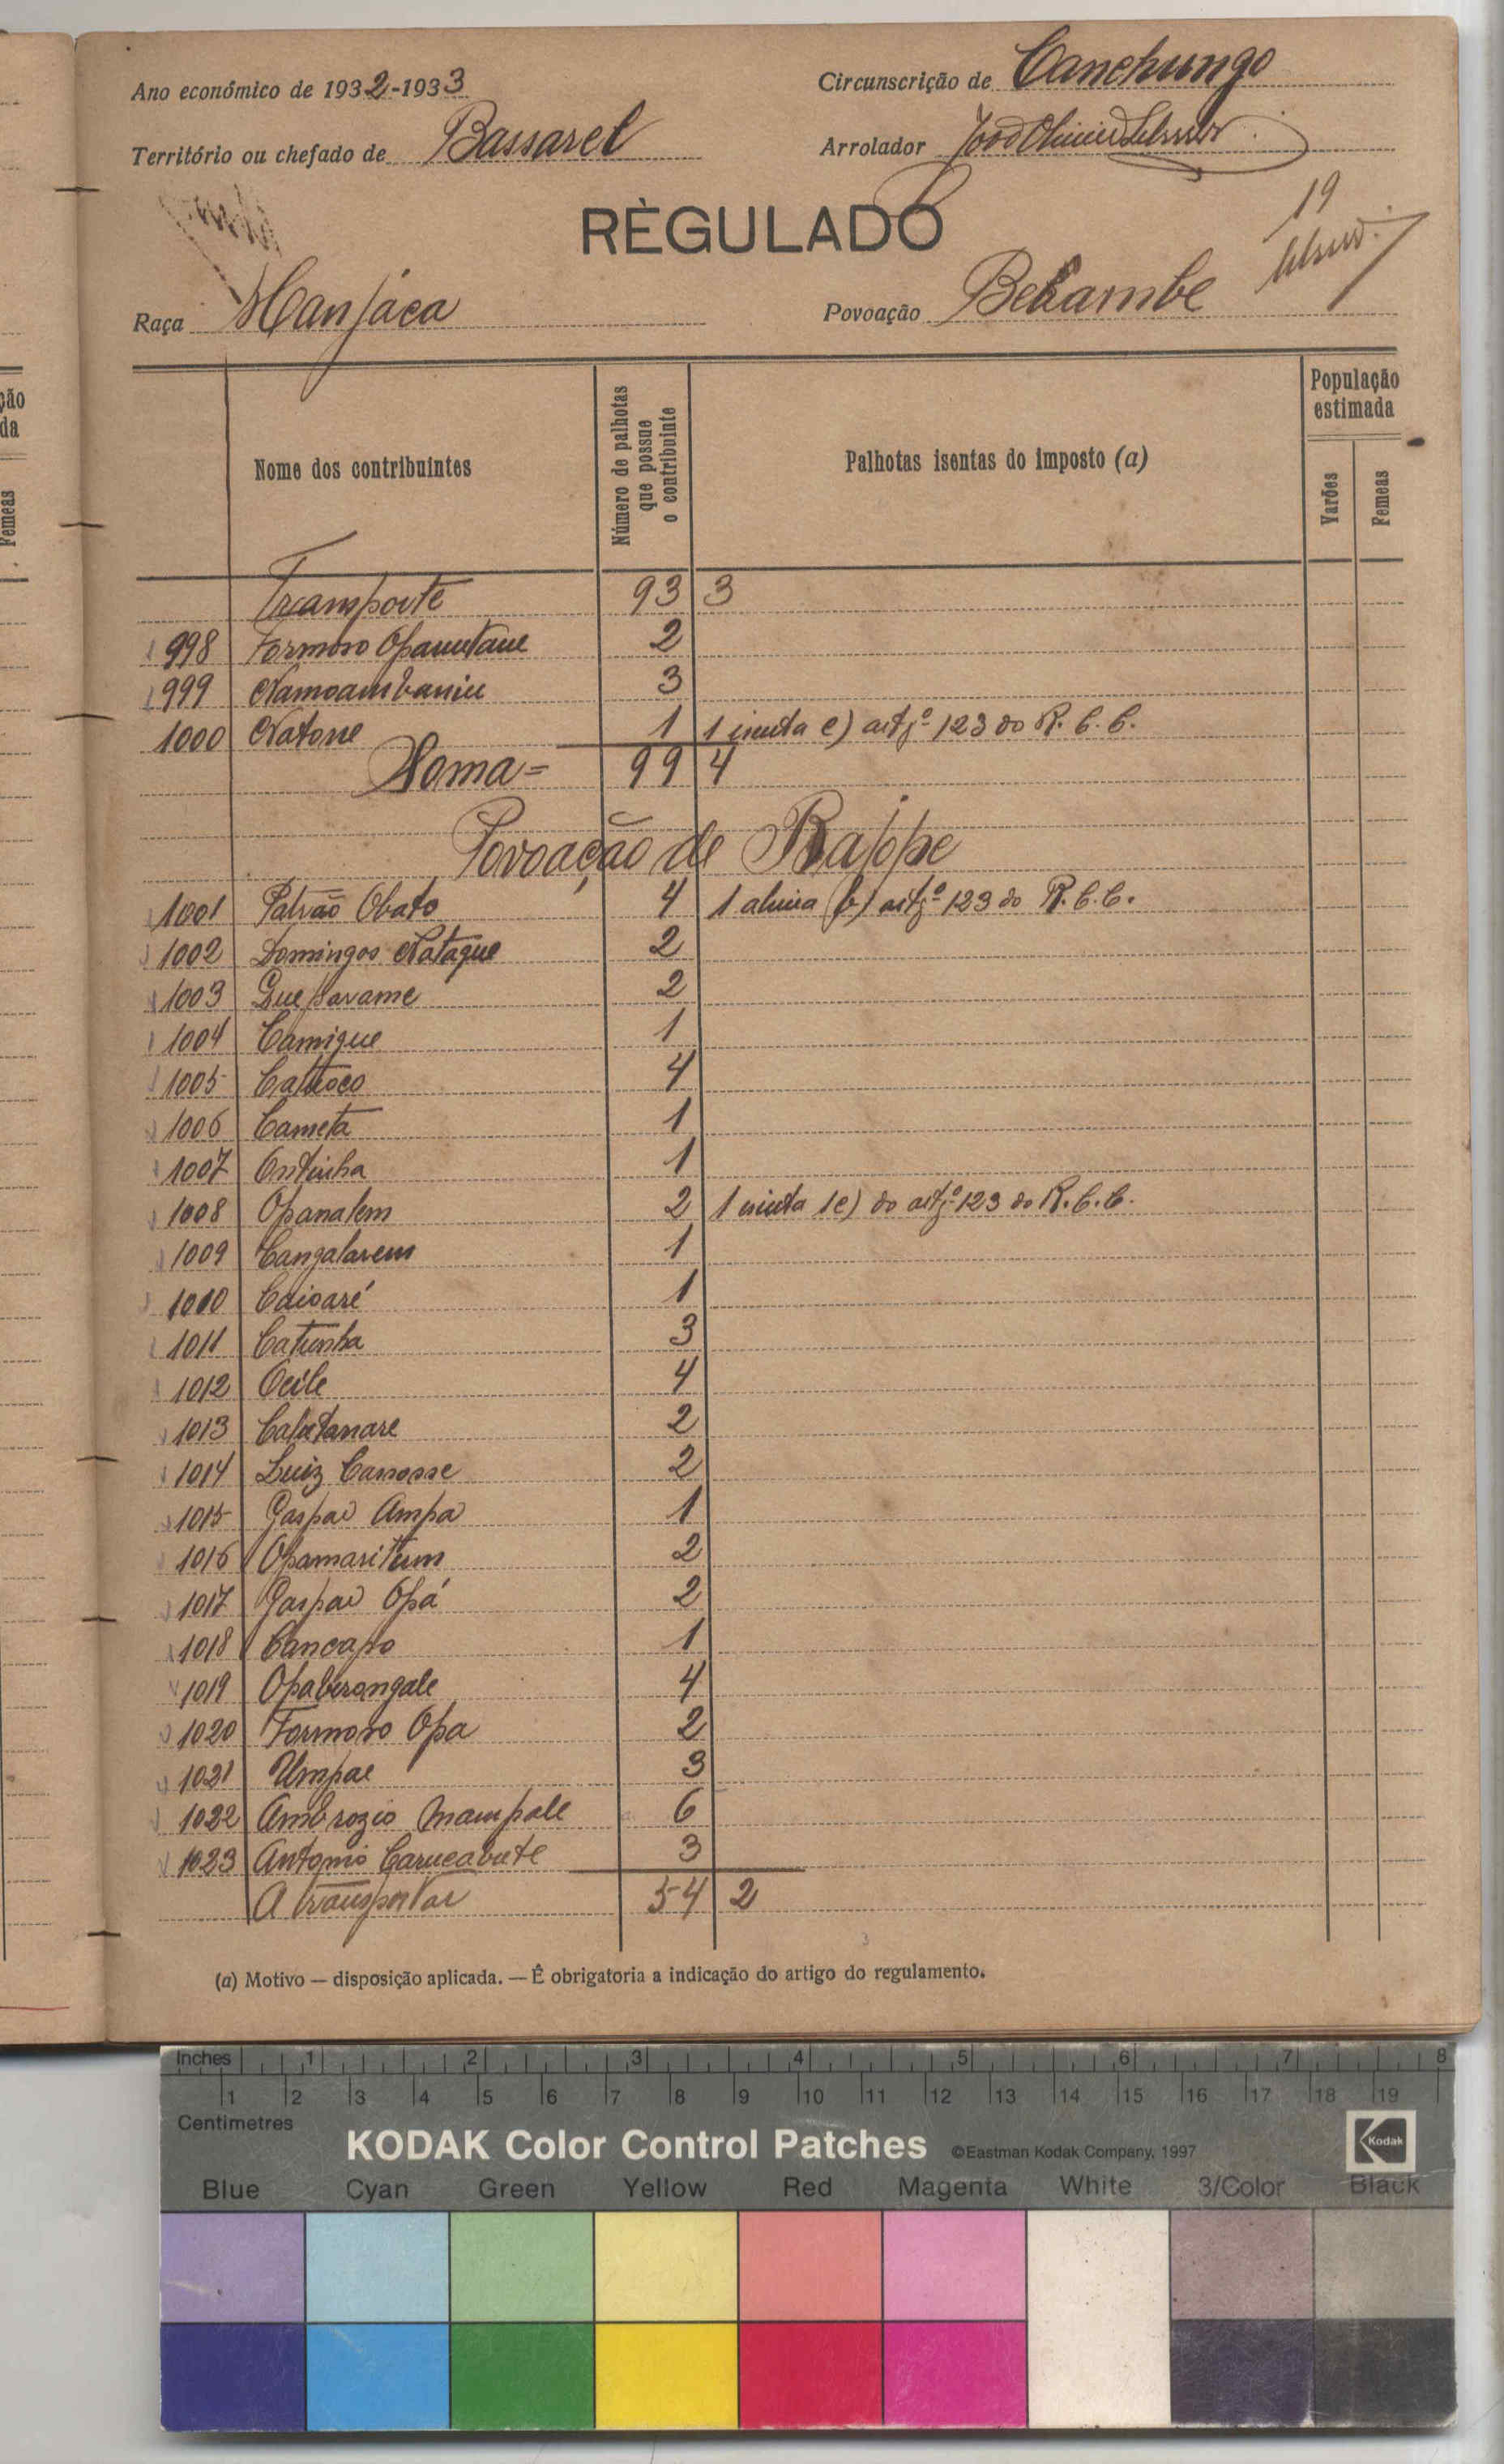 Ano económico de 1932-1933
Circunscrição de Canchungo
Território ou chefado de Bassarel
Arrolador
RÈGULADO
19
Raça Manjáca
Povoação Bekambe
Nome dos contribuintes
Número de palhotas que possue o contribuinte
Palhotas isentas do imposto (a)
População estimada
Varões
Femeas
Transporte 93 3
998 Formoso Opanutane 2
999 Namoambaniu 3
1000 Natone 1 1 isenta e) artgº 123 do R.C.C.
Soma = 99 4
Povoação de Bajope
1001 Patrão Obato 4 1 alinia b) artgº 123 do R.C.C.
1002 Domingos Nataque 2
1003 2
1004 Camique 1
1005 4
1006 Cameta 1
1007 Ontinha 1
1008 Opanalem 2 1 isenta (e) do artgº 123 do R.C.C.
1009 Cangalarem 1
1010 Caioaré 1
1011 Catunha 3
1012 Ocile 4
1013 2
1014 Luiz Canosse 2
1015 Gaspar Ampa 1
1016 Opamaritum 2
1017 Gaspar Opá 2
1018 Cancapo 1
1019 Opaberongale 4
1020 Formoso Opa 2
1021 Umpae 3
1022 Ambrozio Mampale 6
1023 Antonio Carucabute 3
A transportar 54 2
(a) Motivo — disposição aplicada. — É obrigatoria a indicação do artigo do regulamento.
ção
da
Femeas
Inches 1 2 3 4 5 6 7 8
1 2 3 4 5 6 7 8 9 10 11 12 13 14 15 16 17 18 19
Centimetres
KODAK Color Control Patches ©Eastman Kodak Company, 1997 Kodak
Blue Cyan Green Yellow Red Magenta White 3/Color Black